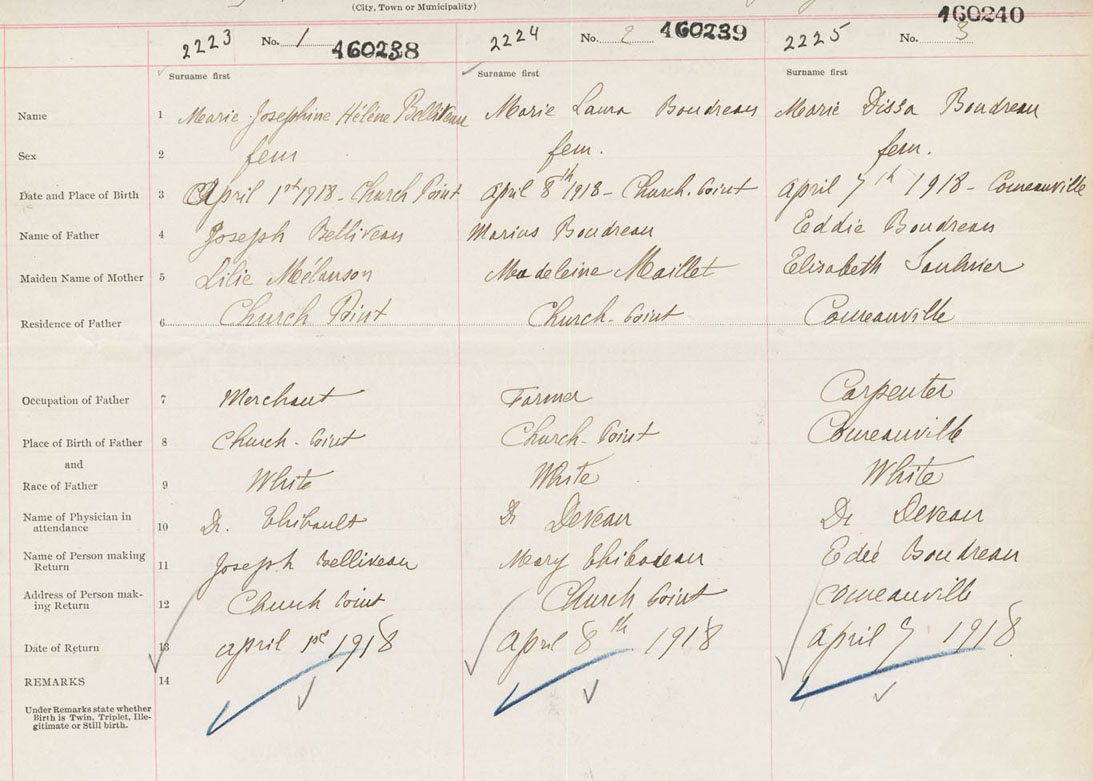 (City, Town or Municipality)
2223 No. 1 160238 2224 No. 2 160239 2225 No. 3 160240
Surname first Surname first Surname first
Name 1 Marie Josephine Hélène Belliveau Marie Laura Boudreau Marie Dissa Boudreau
Sex 2 fem fem. fem.
Date and Place of Birth 3 April 1st 1918 - Church Point April 8th 1918 - Church. Point April 7th 1918 - Comeauville
Name of Father 4 Joseph Belliveau Marius Boudreau Eddie Boudreau
Maiden Name of Mother 5 Lilie Mélanson Madeleine Maillet Elizabeth Saulnier
Residence of Father 6 Church Point Church. Point Comeauville
Occupation of Father 7 Merchant Farmer Carpenter
Place of Birth of Father 8 Church - Point Church - Point Comeauville
and
Race of Father 9 White White White
Name of Physician in
attendance 10 Dr. Thibault Dr Deveau Dr Deveau
Name of Person making
Return 11 Joseph Belliveau Mary Thibodeau Edie Boudreau
Address of Person mak-
ing Return 12 Church Point Church Point Comeauville
Date of Return 13 april 1st 1918 April 8th 1918 april 7 1918
REMARKS 14
Under Remarks state whether
Birth is Twin, Triplet, Ille-
gitimate or Still birth.